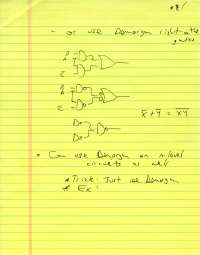 - or use Demorgan right on the gates
A
B
C
A
B
C
X̅ + Y̅ = X̅Y̅
• Can use Demorgan on n-level
circuits as well
* Trick: Just use Demorgan
* Ex: